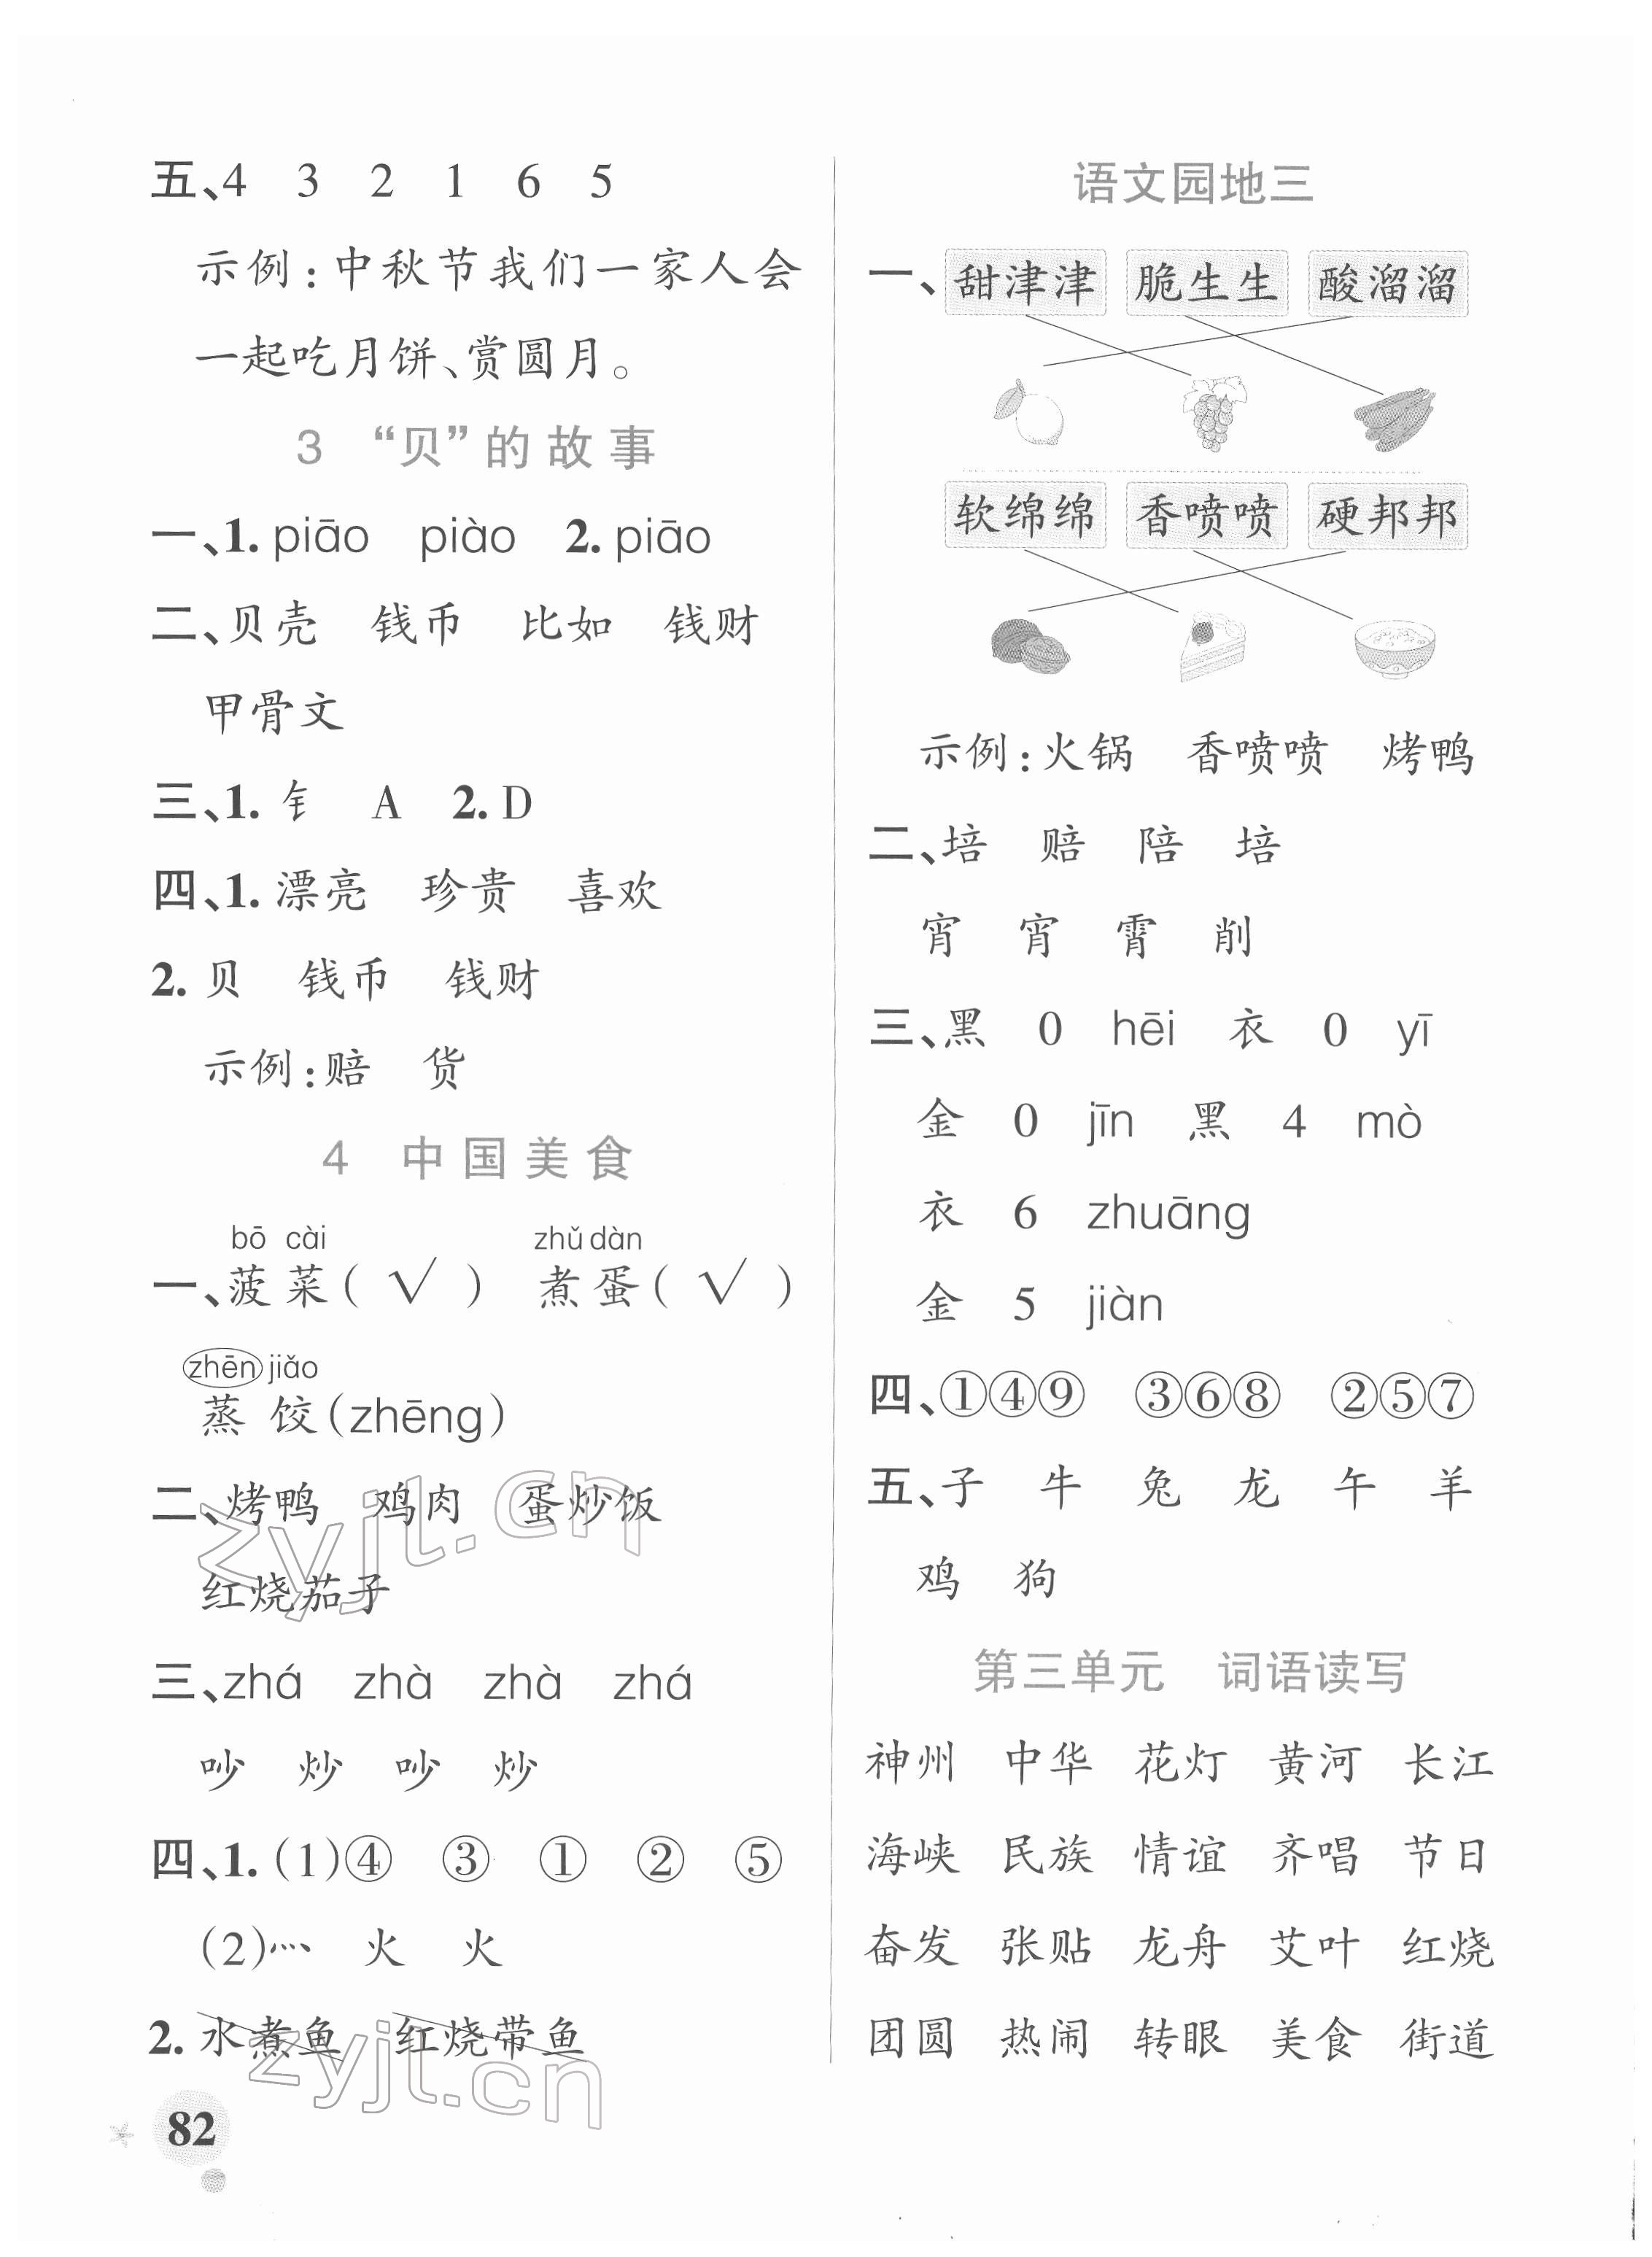 五、4 3 2 1 6 5
示例:中秋节我们一家人会
一起吃月饼、赏圆月。
3 “贝”的故事
一、1. piāo piào 2. piāo
二、贝壳 钱币 比如 钱财
甲骨文
三、1. 钅 A 2. D
四、1. 漂亮 珍贵 喜欢
2. 贝 钱币 钱财
示例:赔 货
4 中国美食
bō cài zhǔ dàn
一、菠菜( √ ) 煮蛋( √ )
zhēn jiǎo
蒸饺(zhēng)
二、烤鸭 鸡肉 蛋炒饭
红烧茄子
三、zhá zhà zhà zhá
吵 炒 吵 炒
四、1. (1)④ ③ ① ② ⑤
(2)灬 火 火
2. 水煮鱼 红烧带鱼
82
语文园地三
一、甜津津 脆生生 酸溜溜
软绵绵 香喷喷 硬邦邦
示例:火锅 香喷喷 烤鸭
二、培 赔 陪 培
宵 宵 霄 削
三、黑 0 hēi 衣 0 yī
金 0 jīn 黑 4 mò
衣 6 zhuāng
金 5 jiàn
四、①④⑨ ③⑥⑧ ②⑤⑦
五、子 牛 兔 龙 午 羊
鸡 狗
第三单元 词语读写
神州 中华 花灯 黄河 长江
海峡 民族 情谊 齐唱 节日
奋发 张贴 龙舟 艾叶 红烧
团圆 热闹 转眼 美食 街道
zyjl.cn
zyjl.cn